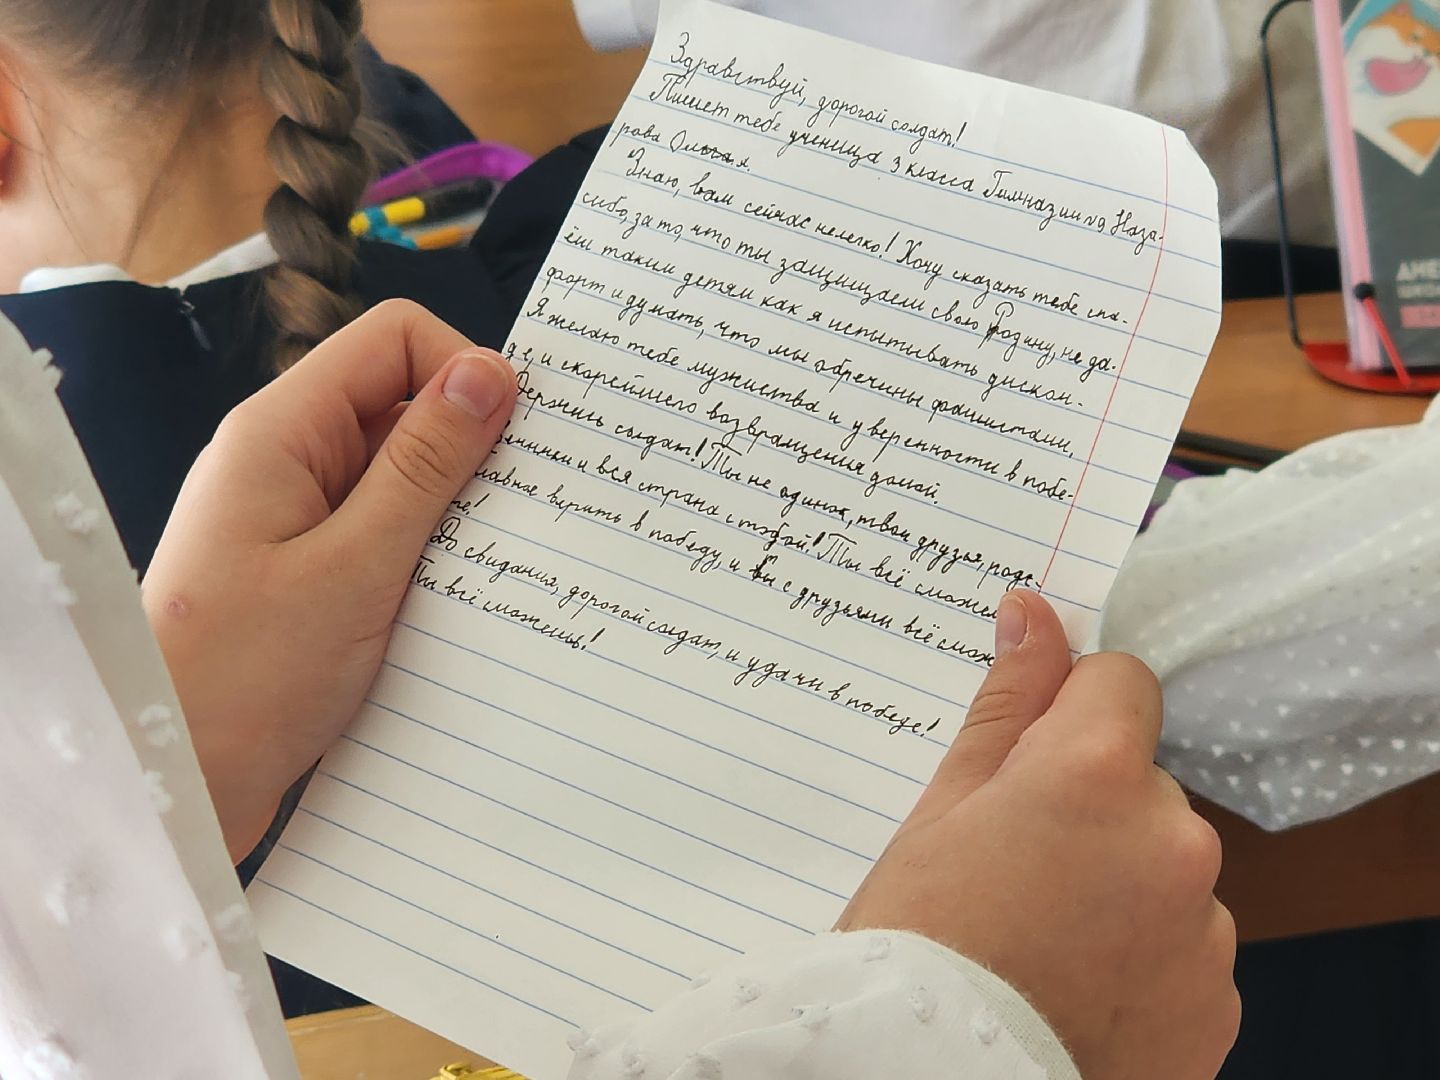 Здравствуй, дорогой солдат!
Пишет тебе ученица 3 класса Гимназии №9 Наза-
рова Ольгая.
Знаю, вам сейчас нелегко! Хочу сказать тебе спа-
сибо, за то, что ты защищаеш свою Родину, не да-
ёш таким детям как я испытывать диском-
форт и думать, что мы обречины фашистами.
Я желаю тебе мужиства и уверенности в побе-
де, и скорейшего возвращения домой.
Держись солдат! Ты не одинок, твои друзья, родс-
венники и вся страна с тобой! Ты всё сможеш
главное верить в победу, и вы с друзьями всё смож
те!
До свидания, дорогой солдат, и удачи в победе!
Ты всё сможешь!